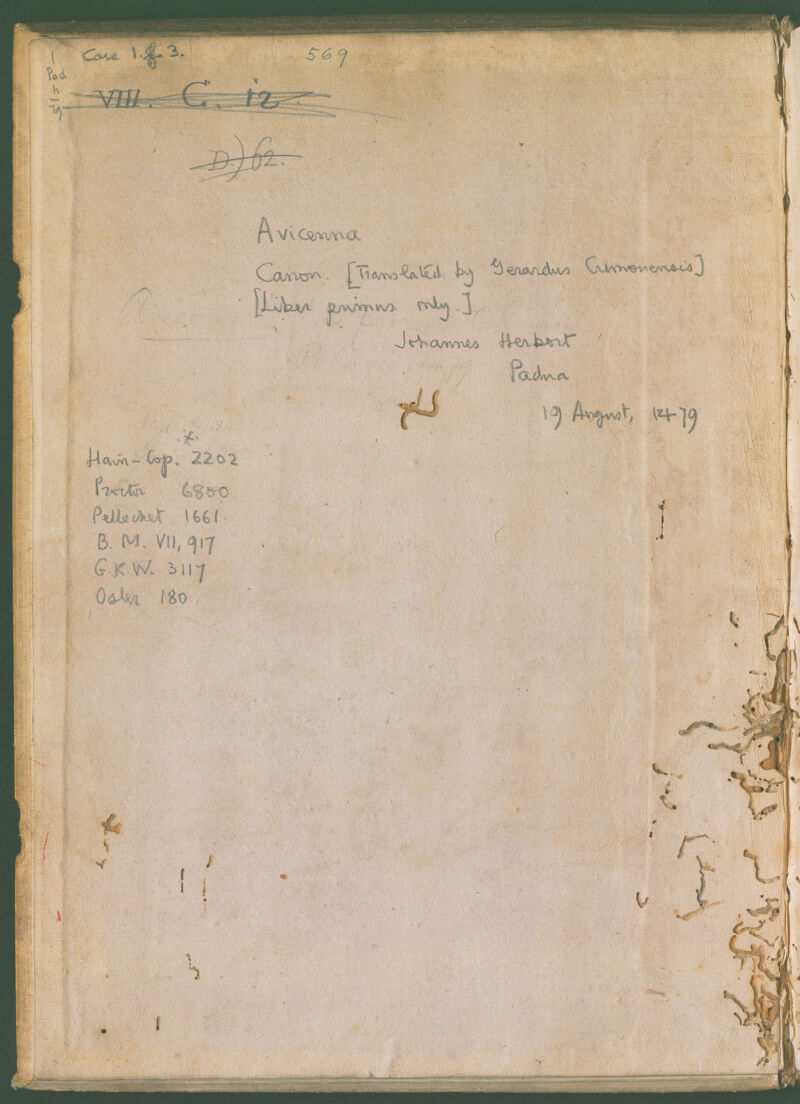 Case 1.f 3.
569
1
Pad
h
79
VIII. C. 12
D.) 62.
Avicenna
Canon. [Translated by Gerardus Cremonensis]
[Liber primus only.]
Johannes Herbort
Padua
19 August, 1479
*
Hain-Cop. 2202
Proctor 6800
Pellechet 1661.
B. M. VII, 917
G.K.W. 3117
Osler 180